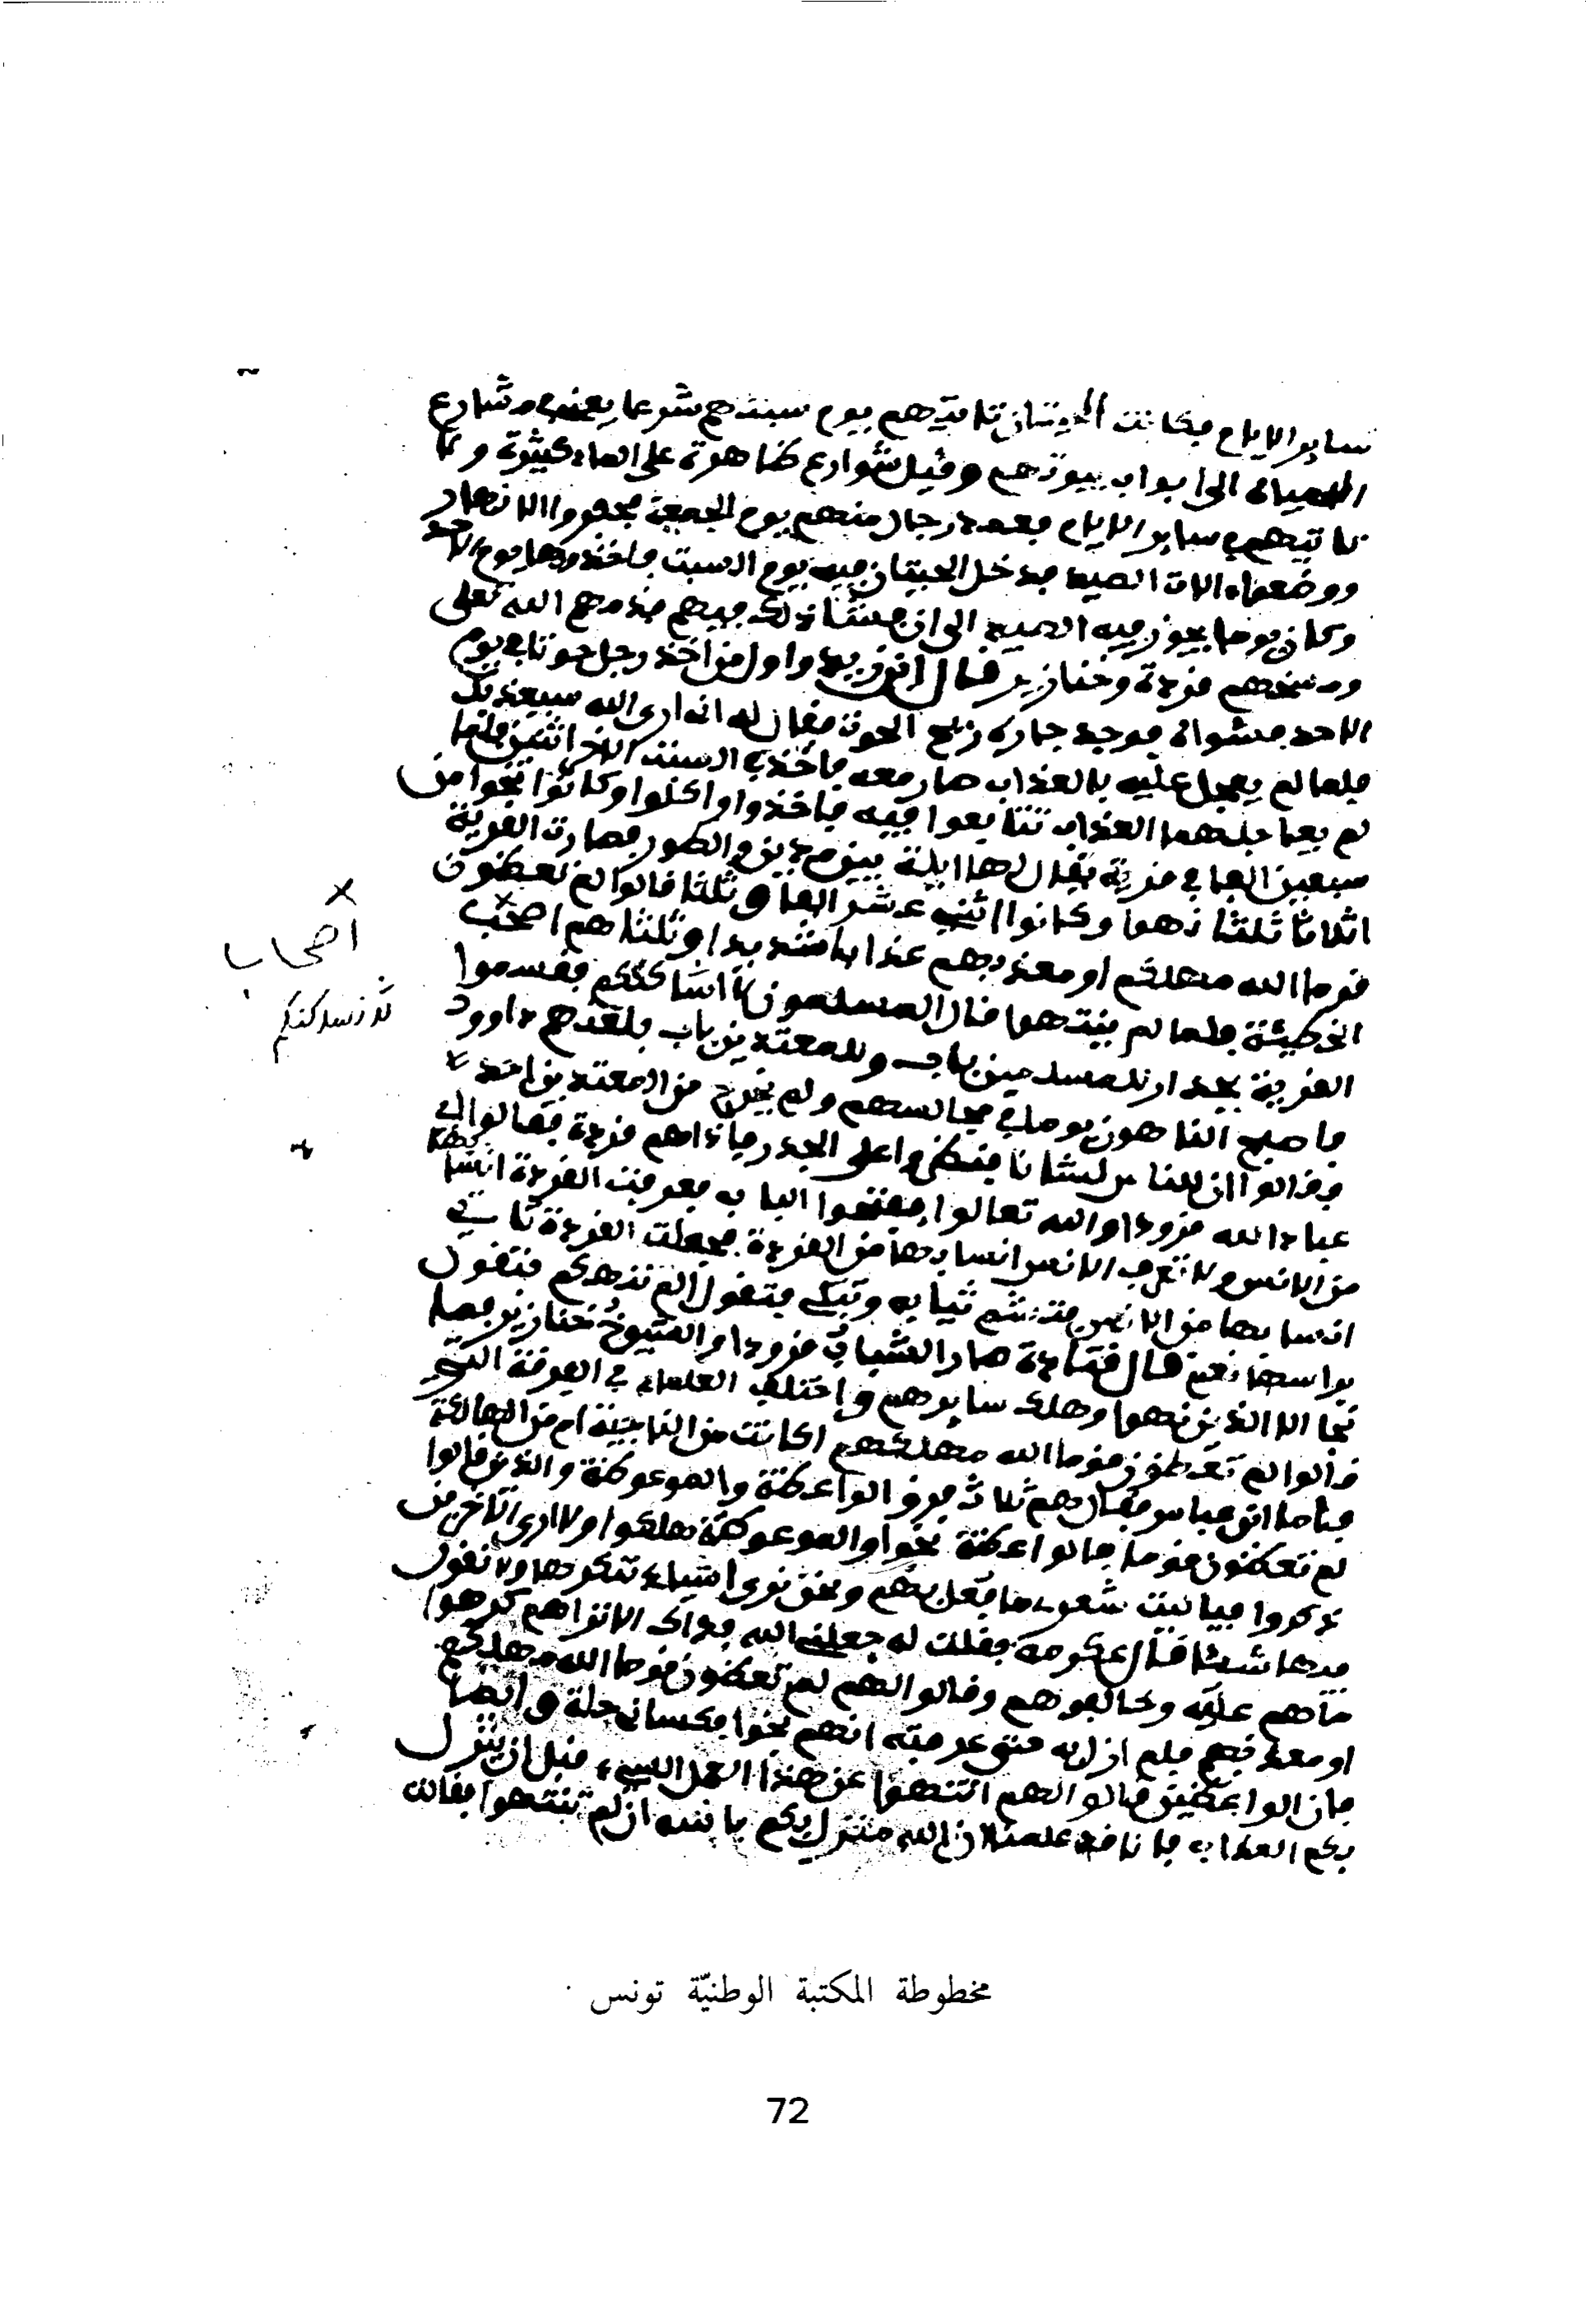 سائر الايام فكانت الحيتان تاتيهم يوم سبتهم شرعا يعني مشارع
المياه الى ابواب بيوتهم وقيل شوارع ظاهرة على الماء كثيرة ولا
تاتيهم في سائر الايام فعمد رجال منهم يوم الجمعة فحفروا الانهار
ووضعوا الات الصيد فدخل الحيتان فيه يوم السبت فاخذوها يوم الاحد
وكان يوما يجوز فيه الصيد الى ان فشا ذلك فيهم فذمهم الله تعلى
ومسخهم قردة وخنازير قال ابن زيد واول من اخذ رجل حوتا في يوم
الاحد فشواه فوجد جاره ريح الحوت فقال له اني ارى الله سيعذبك
فلما لم يعجل عليه بالعذاب صار معه فاخذ في السبت الاخر اثنين فلما
لم يعاجلهما العذاب تتابعوا فيه فاخذوا واكلوا وكانوا نحوا من
سبعين الفا في قرية يقال لها ايلة بين مدين والطور فصارت القرية
اثلاثا ثلثا نهوا وكانوا اثني عشر الفا وثلثا قالوا لم تعظون
قوما الله مهلكهم او معذبهم عذابا شديدا وثلثا هم اصحب
الخطيئة فلما لم ينتهوا قال المسلمون لا نساكنكم فقسموا
القرية بجدار للمسلمين باب وللمعتدين باب فلعنهم داوود
فاصبح الناهون يوما في مجالسهم ولم يخرج من المعتدين احد
فقالوا ان للناس لشانا فنظروا على الجدر فاذا هم قردة فقالوا
عباد الله قرود والله تعالوا ففتحوا الباب فعرفت القردة انسابها
من الانس ولا تعرف الانس انسابها من القردة فجعلت القردة تاتي
انسابها من الانس فتشم ثيابه وتبكي فتقول الم ننهكم فتقول
براسها نعم قال قتادة صار الشباب قرودا والشيوخ خنازير فما
نجا الا الذين نهوا وهلك سائرهم واختلف العلماء في الفرقة التي
قالوا لم تعظون قوما الله مهلكهم اكانت من الناجية ام من الهالكة
فاما ابن عباس فقال هم ثلاث فرق الواعظة والموعوظة والذين قالوا
لم تعظون قوما فالواعظة نجوا والموعوظة هلكوا ولا ادري الاخرين
ذكروا فيا ليت شعري ما فعل بهم ونحن نرى اشياء ننكرها ولا نقول
فيها شيئا قال عكرمة فقلت له جعلني الله فداك الا تراهم كرهوا
ما هم عليه وخالفوهم وقالوا لهم لم تعظون قوما الله مهلكهم
او معذبهم فلم ازل به حتى عرفته انهم نجوا فكساني حلة وايضا
فان الواعظين قالوا لهم انتهوا عن هذا العمل السيء قبل ان ينزل
بكم العذاب فانا قد علمنا ان الله منزل بكم باسه ان لم تنتهوا فقالت
× أصحاب
لا نساكنكم
مخطوطة المكتبة الوطنيّة تونس
72